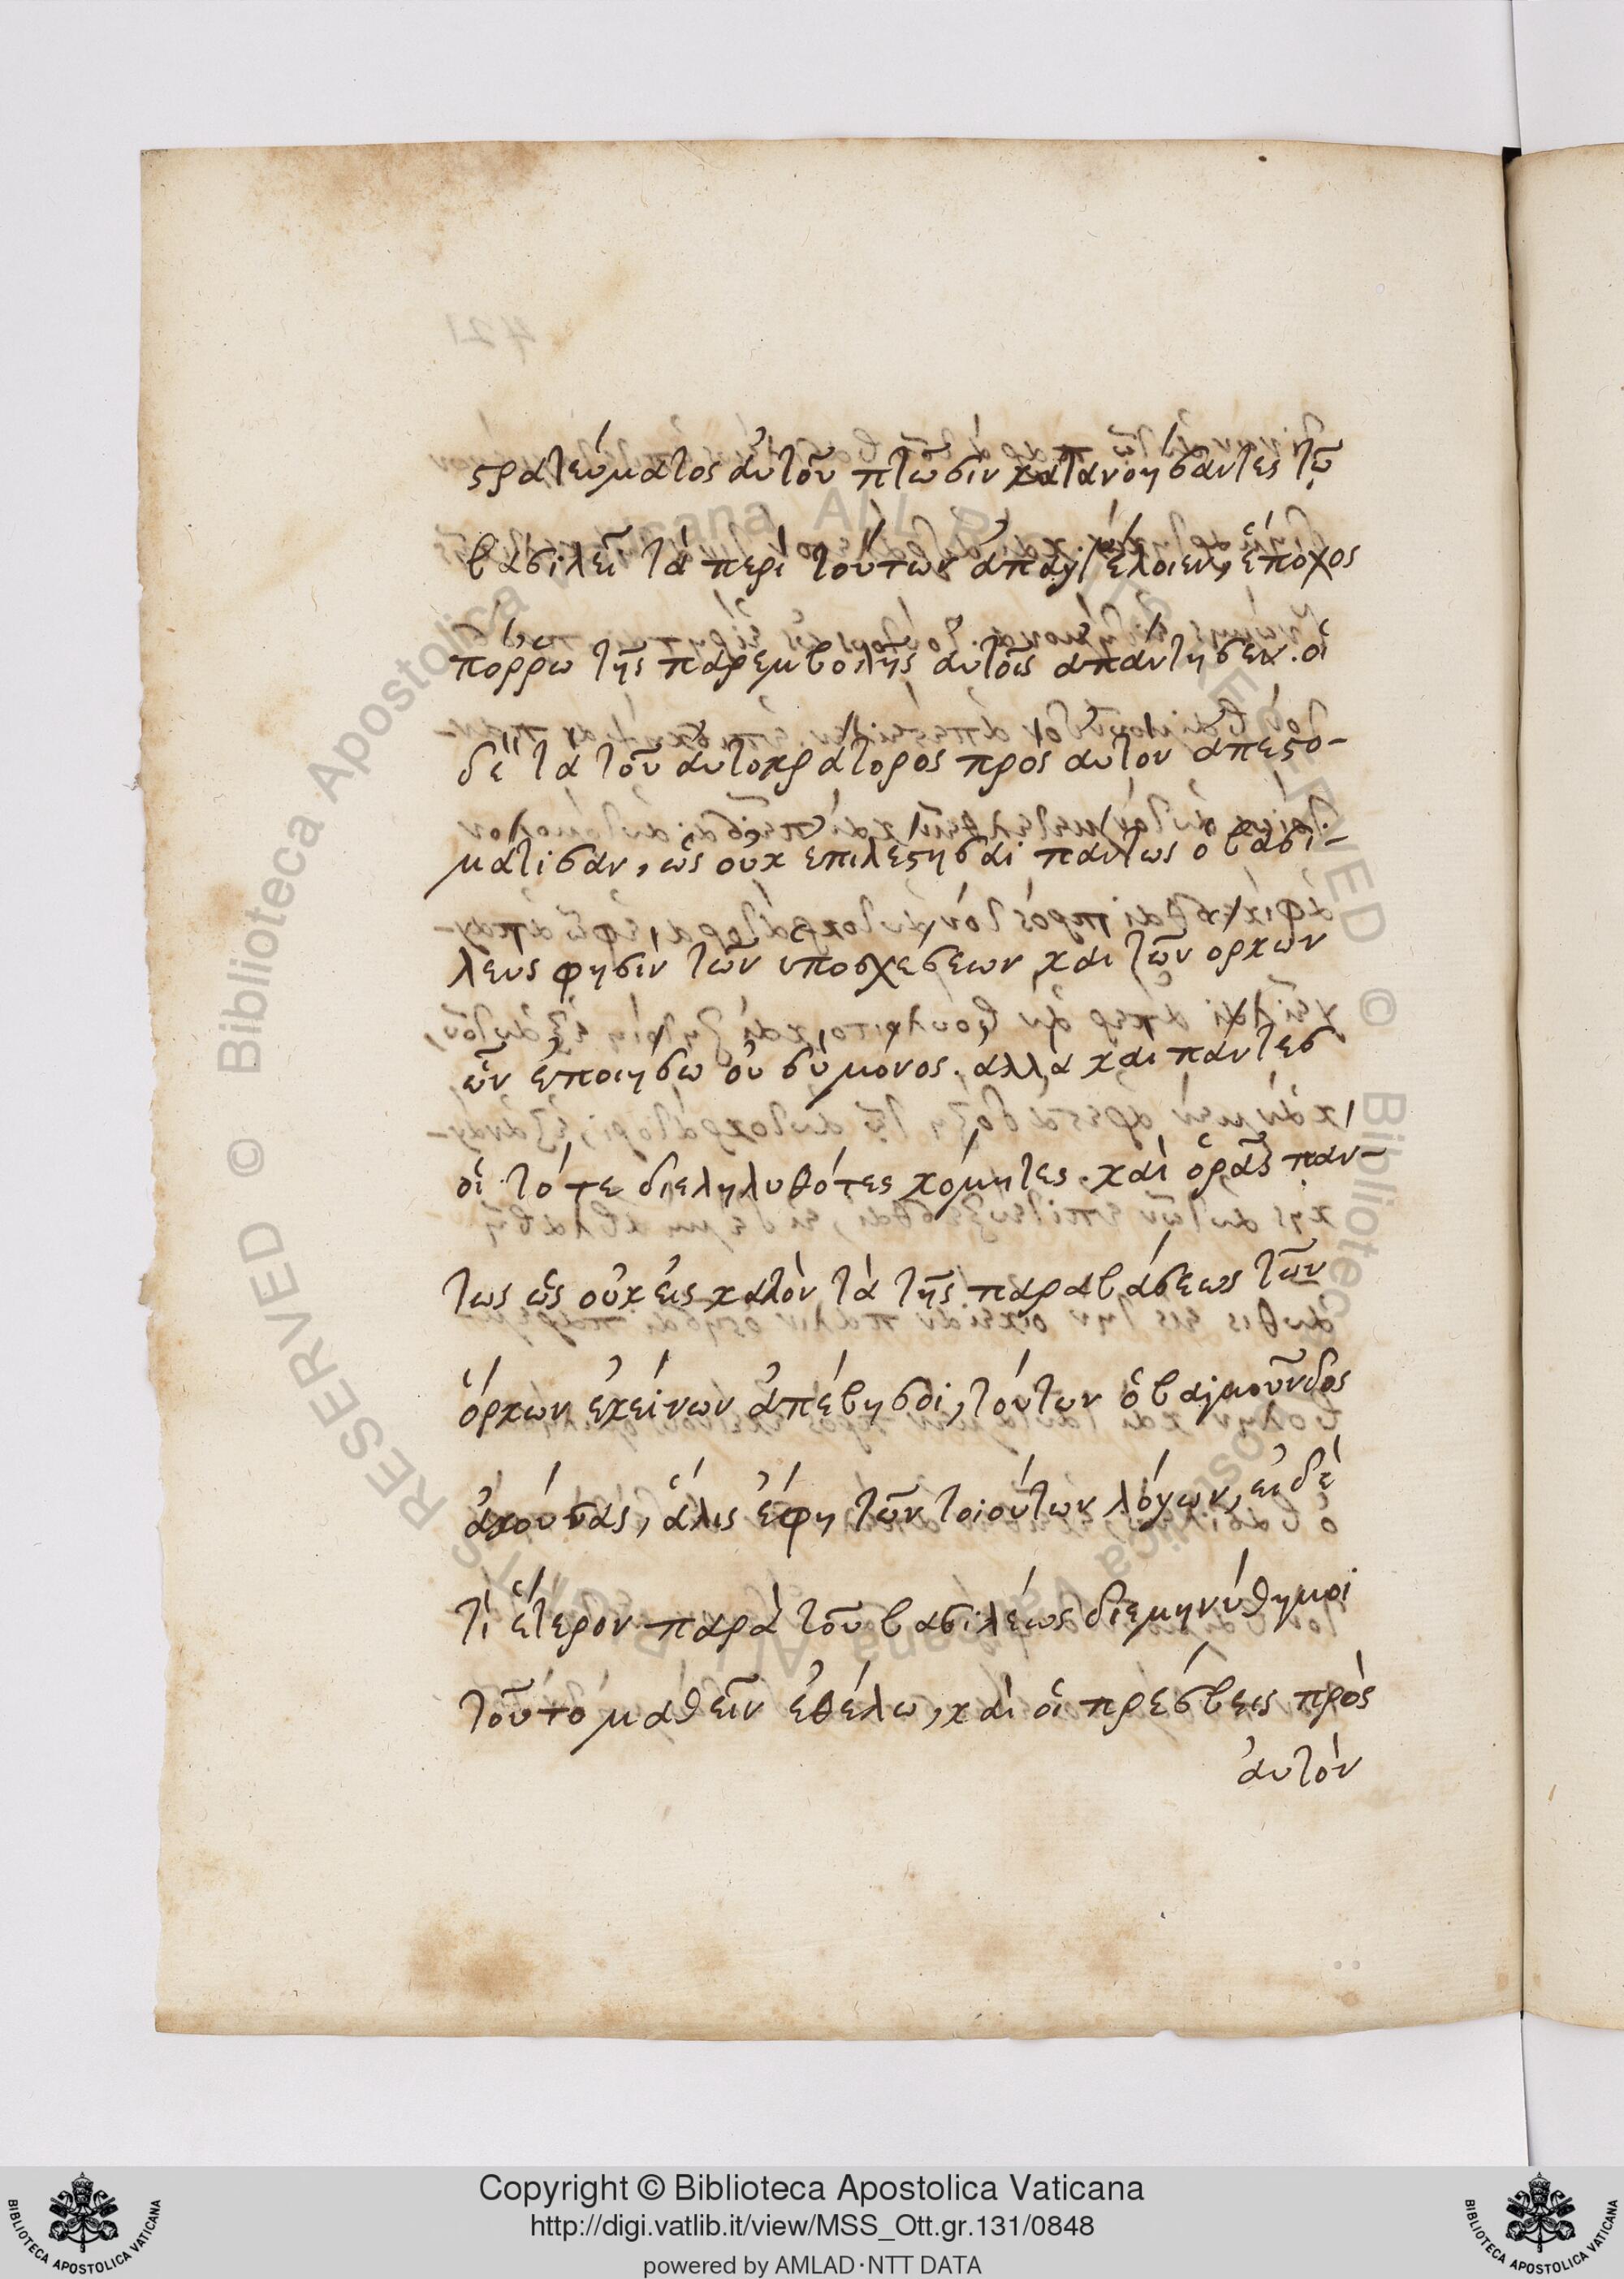 στρατεύματος ἀυτοῦ πτῶσιν κατανοήσαντες τῷ
βασιλεῖ τὰ περὶ τούτων ἀπαγγέλοιεν, ἔποχος
πόῤῥω τῆς παρεμβολῆς ἀυτοῖς ἀπάντησεν. οἱ
δὲ τὰ τοῦ ἀυτοκράτορος πρὸς αυτὸν ἀπεστο-
μάτισαν, ὡς οὐκ ἐπιλέστησαι πάντως ὁ βασι-
λεύς φησιν τῶν ὑποσχέσεων καὶ τῶν ὅρκων
ὧν ἐποιήσω οὐ σὺ μόνος. ἀλλὰ καὶ πάντες
οἱ τότε διεληλυθότες κόμητες. καὶ ὁρᾷς πάν-
τως ὡς οὐκ εἰς καλὸν τὰ τῆς παραβάσεως τῶν
ὅρκων ἐκείνων ἀπέβη σοι, τούτων ὁ βαϊμοῦνδος
ἀκούσας, ἅλις ἔφη τῶν τοιούτων λόγων, ει δέ
τι ἕτερον παρὰ τοῦ βασιλέως διεμηνύθη μοι
τοῦτο μαθεῖν ἐθέλω, καὶ οἱ πρέσβεις πρὸς
ἀυτὸν
Copyright © Biblioteca Apostolica Vaticana
http://digi.vatlib.it/view/MSS_Ott.gr.131/0848
powered by AMLAD·NTT DATA
BIBLIOTECA APOSTOLICA VATICANA
BIBLIOTECA APOSTOLICA VATICANA